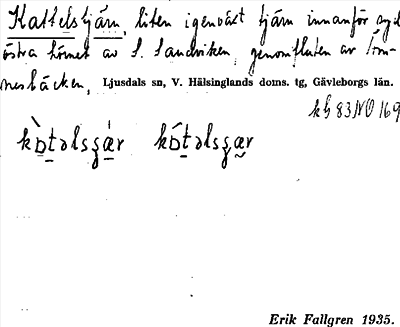 Kattelstjärn, liten igenväxt tjärn innanför syd
östra hörnet av S. Sandviken, genomfluten av Töm-
nesbäcken, Ljusdals sn, V. Hälsinglands doms. tg, Gävleborgs län.
83 NO 169
Erik Fallgren 1935.